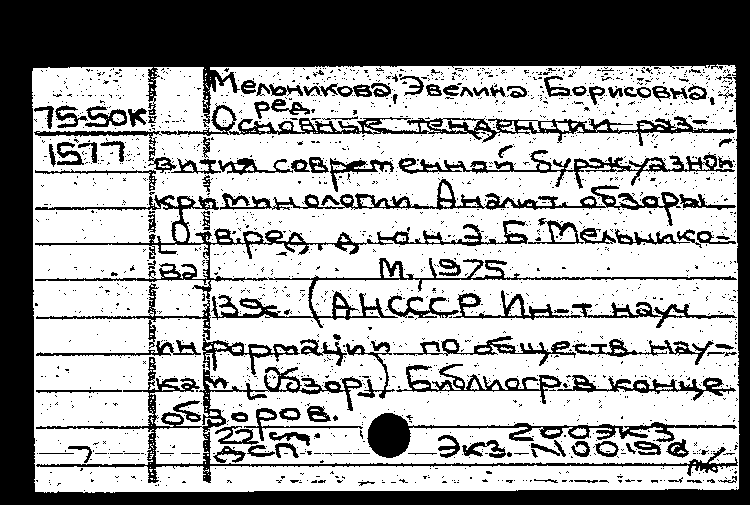 Мельникова, Эвелина Борисовна,
ред.
75-50к
Основные тенденции раз-
1577
вития современной буржуазной
криминологии. Аналит. обзоры
[Отв. ред. д.ю.н. Э. Б. Мельнико-
ва
М., 1975.
139с. (АНСССР. Ин-т науч
информации по обществ. нау-
кам. [Обзор]) Библиогр. в конце
обзоров.
22 см. 200экз
ДСП. Экз. N 00196